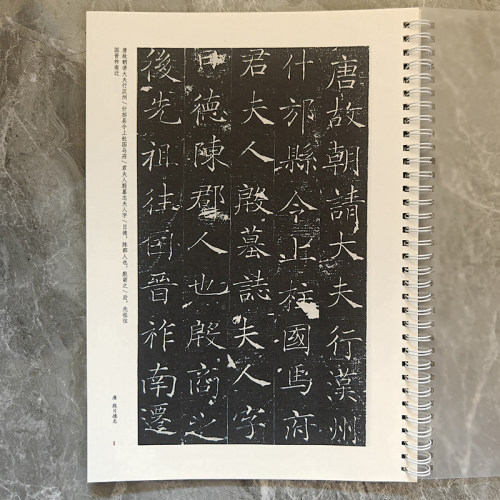 唐故朝請大夫行漢州
什邡縣令上柱國馬府
君夫人殷墓誌夫人字
日德陳郡人也殷商之
後先祖往因晉祚南遷
唐故朝请大夫行汉州/什邡县令上柱国马府/君夫人殷墓志夫人字/日德，陈郡人也，殷商之/后，先祖往
因晋祚南迁
唐 殷日德志
1